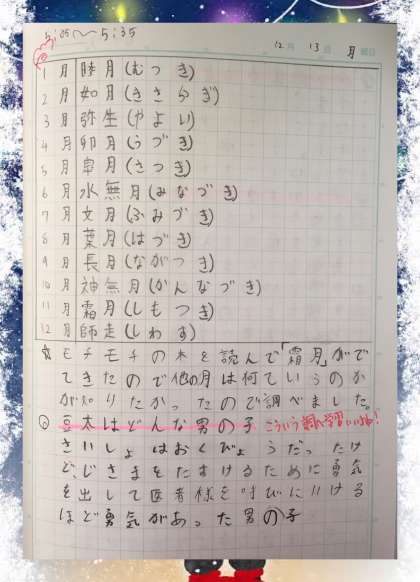 5:05〜5:35
12月 13日 月曜日
1月 睦月(むつき)
2月 如月(きさらぎ)
3月 弥生(やよい)
4月 卯月(うづき)
5月 皐月(さつき)
6月 水無月(みなづき)
7月 文月(ふみづき)
8月 葉月(はづき)
9月 長月(ながつき)
10月 神無月(かんなづき)
11月 霜月(しもつき)
12月 師走(しわす)
☆モチモチの木を読んで「霜月」がで
てきたので他の月は何ていうのか
が知りたかったので調べました。
◎豆太はどんな男の子 こういう調べ学習いいね!
さいしょはおくびょうだったけ
ど、じさまをたすけるために勇気
を出して医者様を呼びに行ける
ほど勇気があった男の子